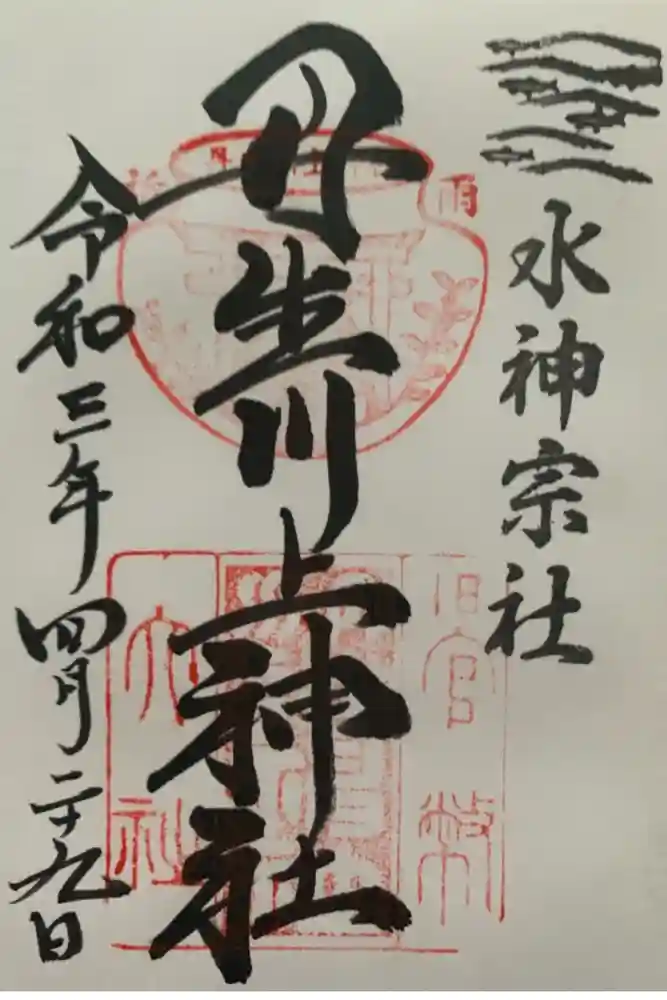 水神宗社
丹生川上神社
令和三年四月二十九日
官幣
大社